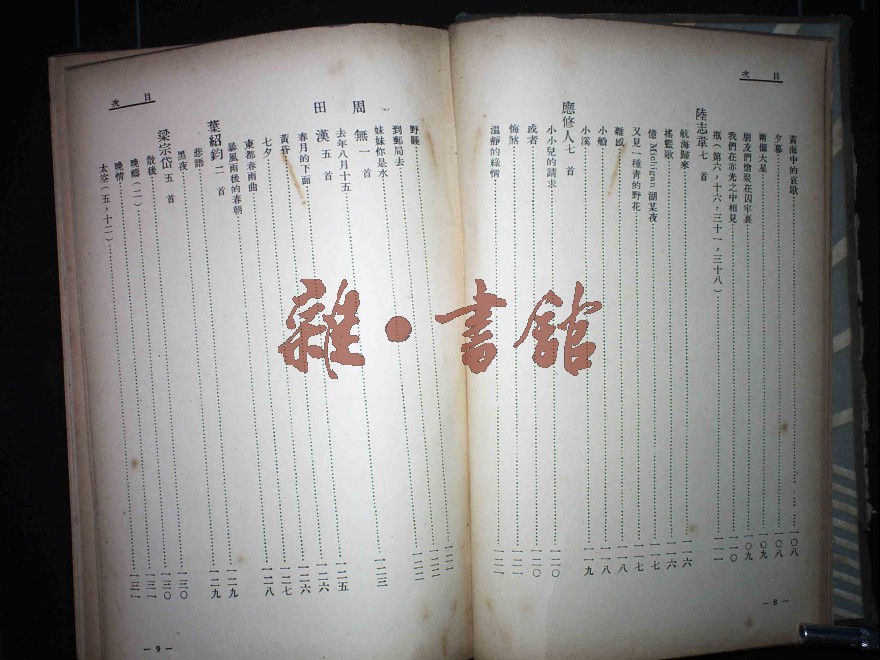 目次
黃海中的哀歌 一〇八
夕暮 一〇八
兩個大星 一〇九
朋友們愴聚在囚牢裏 一〇九
我們在赤光之中相見 一一〇
瓶(第六,十六,三十一,三十八) 一一一
陸志韋 七首
航海歸來 一一六
搖籃歌 一一六
憶 Michigan 湖某夜 一一七
又見一種青的野花 一一七
雜感 一一八
小船 一一八
小溪 一一九
應修人 七首
小小兒的請求 一二〇
或者 一二〇
悔煞 一二一
溫靜的綠情 一二一
— 8 —
目次
野睡
到郵局去 一二二
妹妹你是水 一二二
周無 一首
去年八月十五 一二三
田漢 五首
春月的下面 一二五
黃昏 一二六
七夕 一二六
東都春雨曲 一二七
暴風雨後的春朝 一二八
葉紹鈞 二首
悲語 一二九
黑夜 一二九
梁宗岱 五首
散後 一三〇
晚禱(二) 一三〇
晚情 一三一
太空(五,十二) 一三一
— 9 —
雜·書館